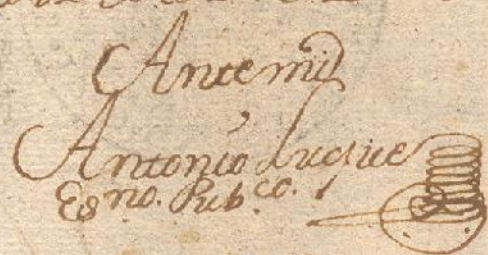 Ante mi
Antonio Luque
Esno. Pubco.